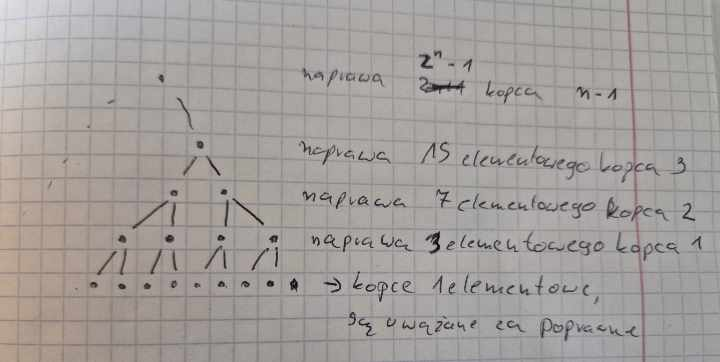 naprawa 2ⁿ - 1 kopca n-1
naprawa 15 elementowego kopca 3
naprawa 7 elementowego kopca 2
naprawa 3 elementowego kopca 1
→ kopce 1 elementowe,
są uważane za poprawne